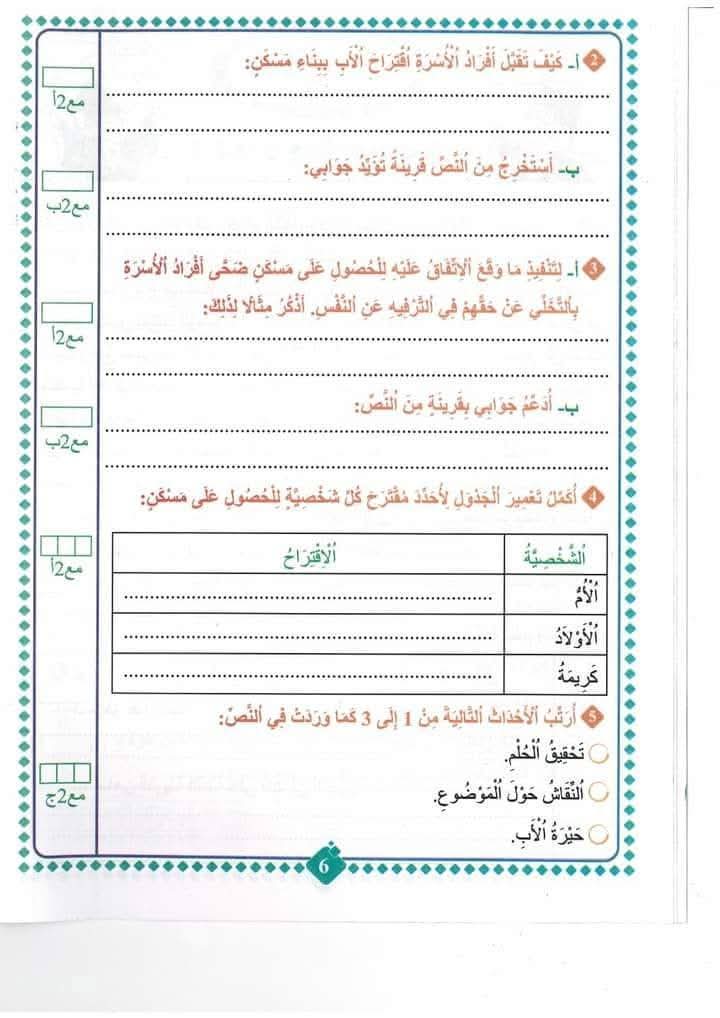 2 أ- كَيْفَ تَقَبَّلَ أَفْرَادُ ٱلْأُسْرَةِ ٱقْتِرَاحَ ٱلْأَبِ بِبِنَاءِ مَسْكَنٍ:
مع2أ
ب- أَسْتَخْرِجُ مِنَ ٱلنَّصِّ قَرِينَةً تُؤَيِّدُ جَوَابِي:
مع2ب
3 أ- لِتَنْفِيذِ مَا وَقَعَ ٱلِٱتِّفَاقُ عَلَيْهِ لِلْحُصُولِ عَلَى مَسْكَنٍ ضَحَّى أَفْرَادُ ٱلْأُسْرَةِ
بِٱلتَّخَلِّي عَنْ حَقِّهِمْ فِي ٱلتَّرْفِيهِ عَنِ ٱلنَّفْسِ. أَذْكُرُ مِثَالًا لِذَلِكَ:
مع2أ
ب- أُدَعِّمُ جَوَابِي بِقَرِينَةٍ مِنَ ٱلنَّصِّ:
مع2ب
4 أُكَمِّلُ تَعْمِيرَ ٱلْجَدْوَلِ لِأُحَدِّدَ مُقْتَرَحَ كُلِّ شَخْصِيَّةٍ لِلْحُصُولِ عَلَى مَسْكَنٍ:
ٱلشَّخْصِيَّةُ ٱلِٱقْتِرَاحُ
مع2أ
ٱلْأُمُّ
ٱلْأَوْلَادُ
كَرِيمَةُ
5 أُرَتِّبُ ٱلْأَحْدَاثَ ٱلتَّالِيَةَ مِنْ 1 إِلَى 3 كَمَا وَرَدَتْ فِي ٱلنَّصِّ:
تَحْقِيقُ ٱلْحُلْمِ.
ٱلنِّقَاشُ حَوْلَ ٱلْمَوْضُوعِ.
مع2ج
حَيْرَةُ ٱلْأَبِ.
6